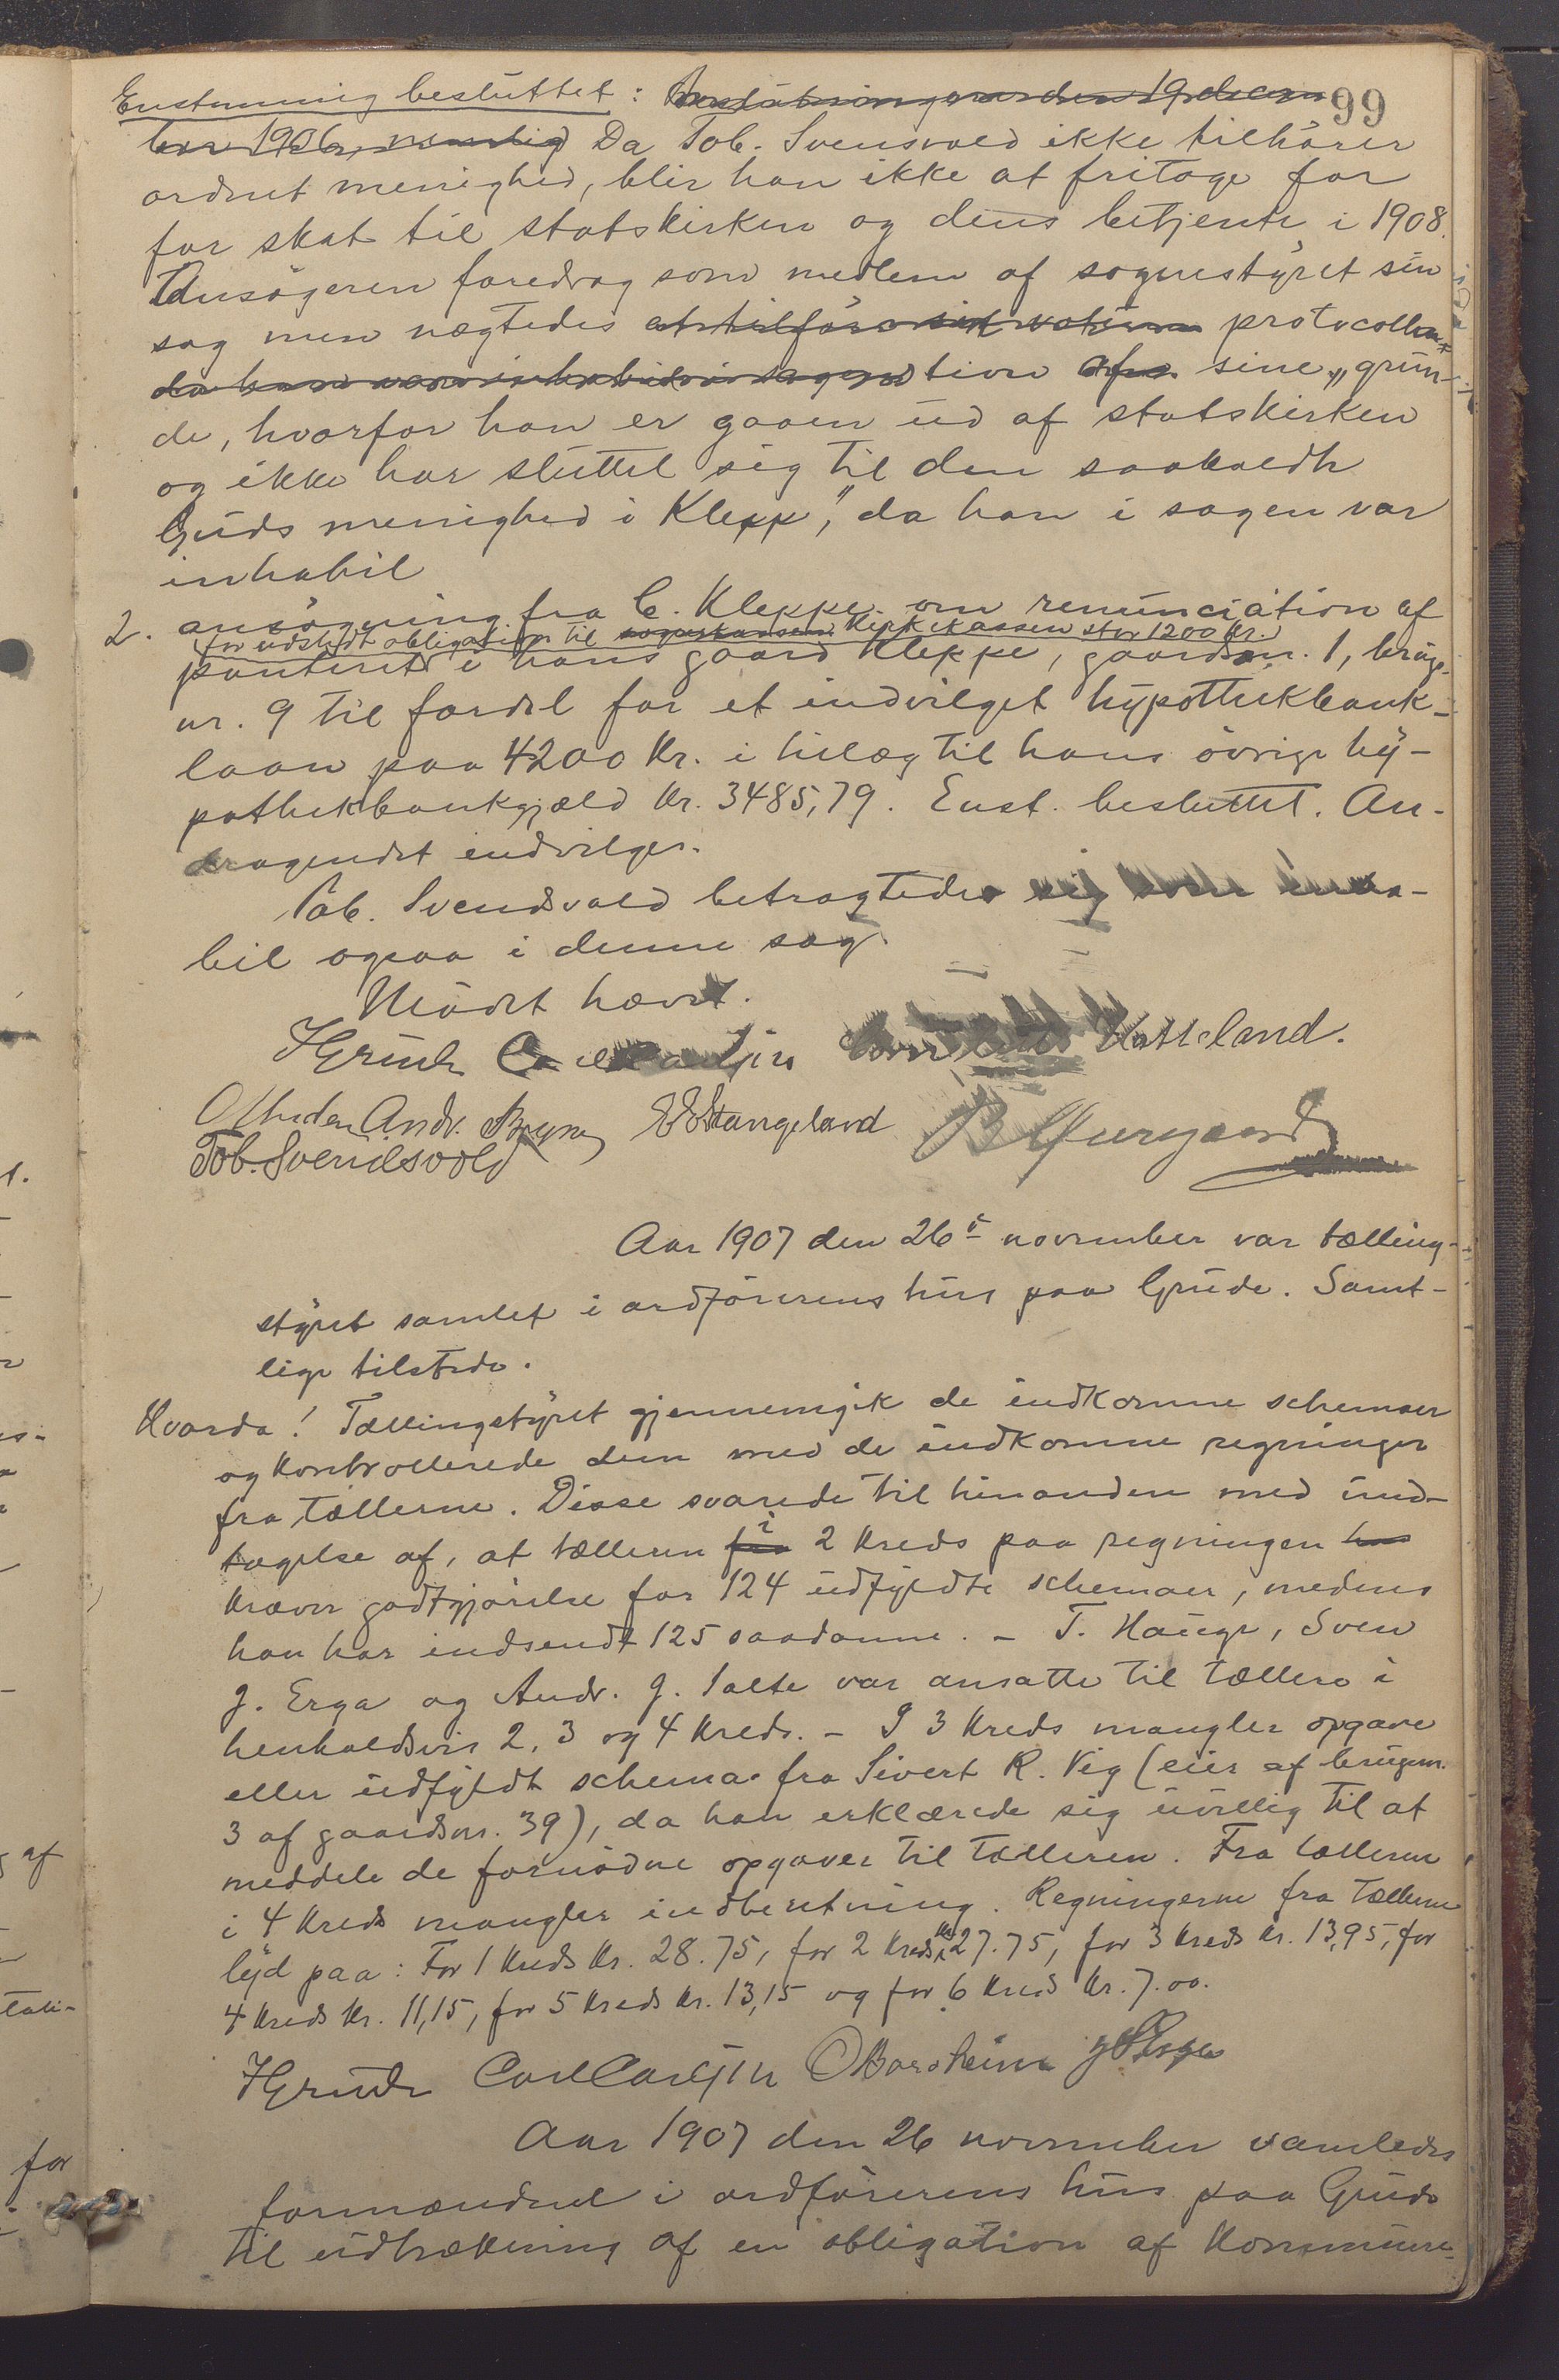 99
Enstemmig besluttet: Beslutningen af den 19 decem
ber 1906, nemlig Da Tob. Svensvold ikke tilhører
ordnet menighed, blir han ikke at fritage for
for skat til statskirken og dens betjente i 1908.
Ansøgeren foredrog som medlem af sognestyret sin
sag men nægtedes at tilføre sit votum protocolla-
da han var inhabil i sagen tion af sine „grun-
de, hvorfor han er gaaen ud af statskirken
og ikke har sluttet sig til den saakaldte
Guds menighed i Klepp", da han i sagen var
inhabil
2. ansøgning fra C. Kleppe om renunciation af
for udstedt obligation til sognekassen Kirkekassen stor 1200 Kr.
panteret i hans gaard Kleppe, gaardsnr. 1, brugs-
nr. 9 til fordel for et indvilget hypothekbank-
laan paa 4200 Kr. i tillæg til hans øvrige hy-
pothekbankgjæld Kr. 3485,79. Enst. besluttet. An-
dragendet indvilges.
Tob. Svendsvold betragtedes sig som inha-
bil ogsaa i denne sag.
Mødet hævet.
HGrude Carl Carlsen Hatteland.
Andr. Bryne EEStangeland
Tob. Svendsvold
Aar 1907 den 26de november var tælling-
styret samlet i ordførerens hus paa Grude. Samt-
lige tilstede.
Hvorda! Tællingstyret gjennemgik de indkomne schemaer
og kontrollerede dem med de indkomne regninger
fra tællerne. Disse svarede til hinanden med und-
tagelse af, at tælleren fra i 2 kreds paa regningen har
kræver godtgjørelse for 124 udfyldte schemaer, medens
han har indsendt 125 saadanne. – T. Hauge, Sven
J. Erga og Andr. J. Salte var ansatte til tællere i
henholdsvis 2, 3 og 4 kreds. – I 3 kreds mangler opgave
eller udfyldt schema fra Sivert R. Vig (eier af brugsnr.
3 af gaardsnr. 39), da han erklærede sig uvillig til at
meddele de fornødne opgaver til tælleren. Fra tælleren
i 4 kreds mangler indberetning. Regningerne fra tællerne
lyd paa: For 1 kreds Kr. 28.75, for 2 kreds Kr. 27.75, for 3 kreds Kr. 13,95, for
4 kreds Kr. 11,15, for 5 kreds Kr. 13,15 og for 6 kreds Kr. 7.00.
HGrude Carl Carlsen OBorsheim
Aar 1907 den 26 november samledes
formændene i ordførerens hus paa Grude
til udtrækning af en obligation af Kommune-